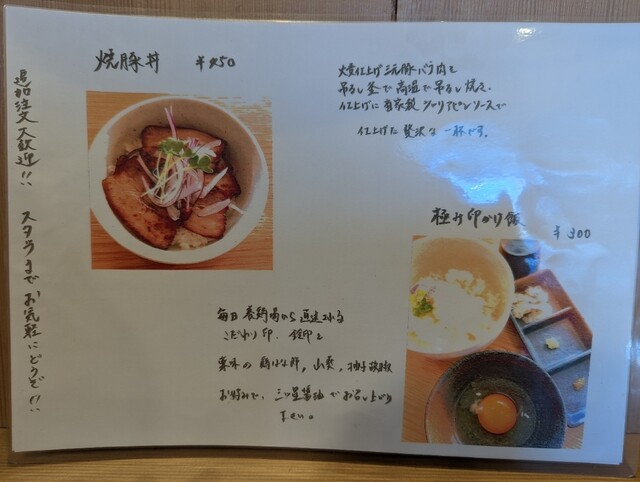 焼豚丼 ¥450
吊るし釜で高温で吊るし焼き、
仕上げに自家製シャリアピンソースで
仕上げた贅沢な一杯です。
追加注文大歓迎!!
スタッフまでお気軽にどうぞ!!
極み卵かけ飯
¥300
毎日養鶏場から直送される
こだわり卵、
薬味の鶏ふりかけ,山葵,柚子胡椒
お好みで、三ツ星醤油でお召し上がり
下さい。